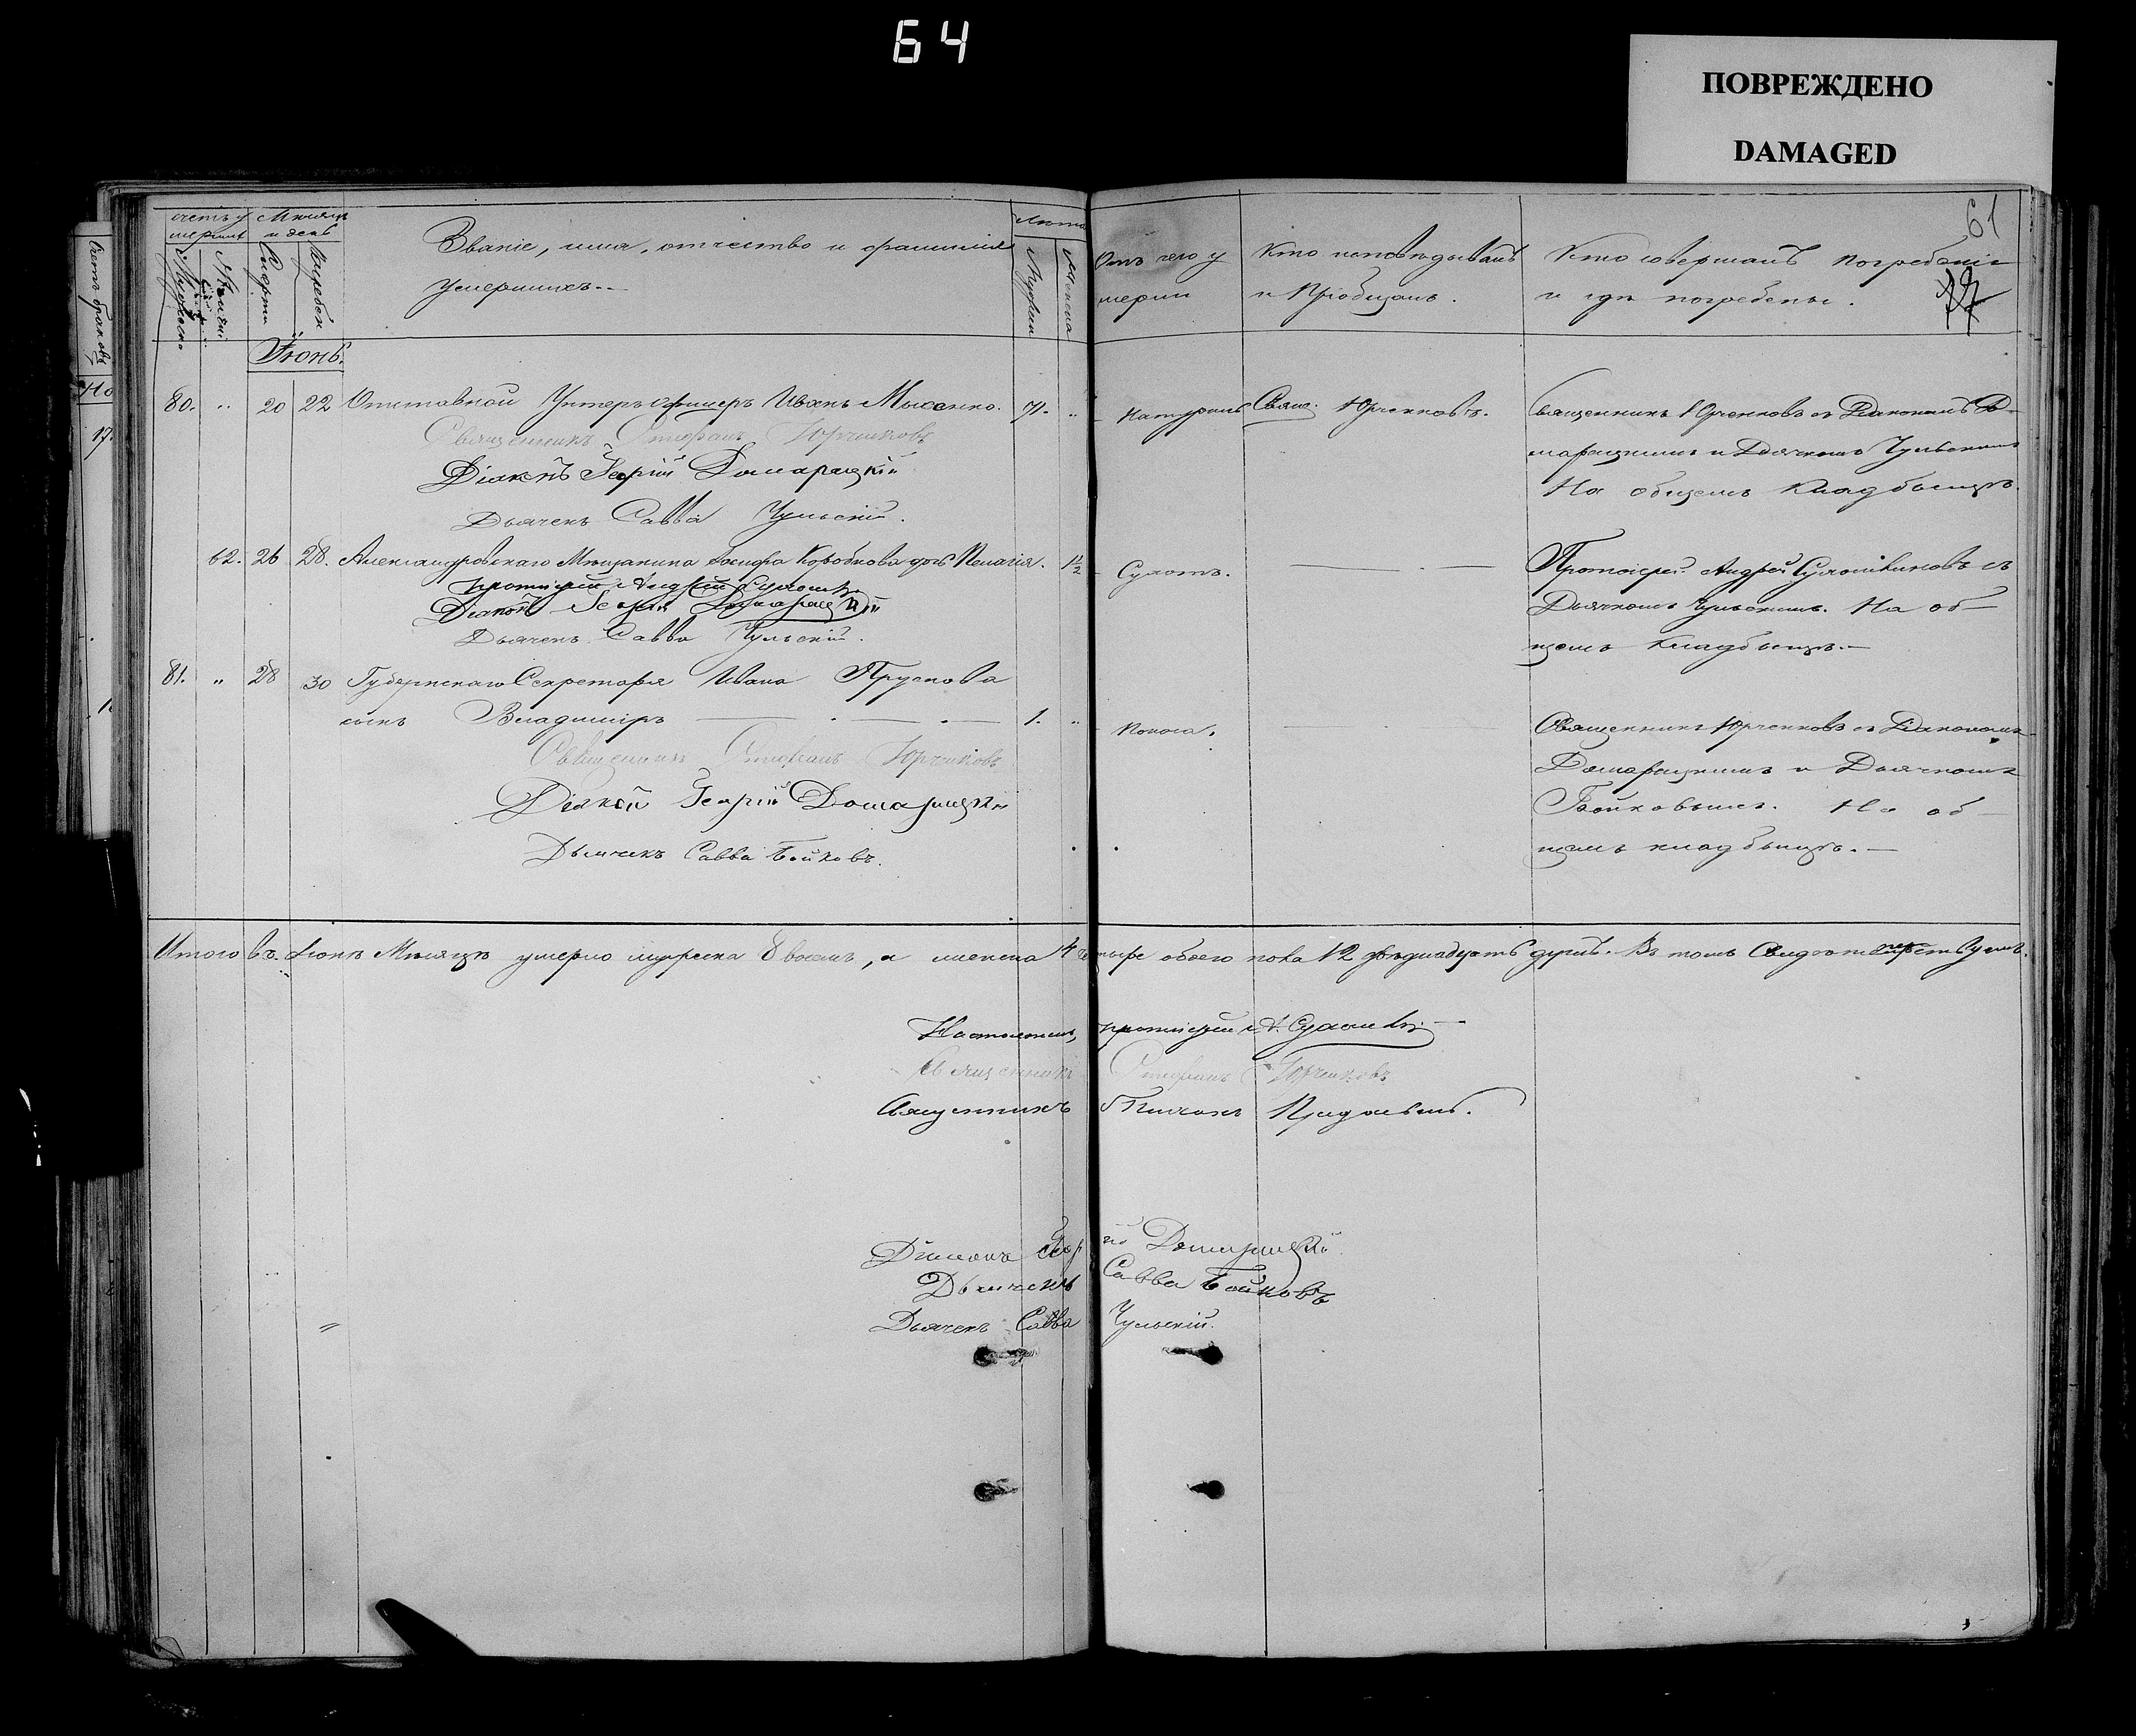 64
ПОВРЕЖДЕНО
DAMAGED
61
счетъ умершихъ
Мѣсяцъ и день
Мужеска
Женска
Смерти
Погребен
Званіе, имя, отчество и фамилія
умершихъ.
Лѣта
Мужеска
Женска
Отъ чего у
мерли
Кто исповѣдывалъ
и Пріобщалъ.
Кто совершалъ погребеніе
и гдѣ погребены.
Счетъ браковъ
Іюнь.
80. " 20 22 Отставной Унтеръ офицеръ Иванъ 71. "
Натурально Свящ. Юрченковъ.
Священникъ Юрченковъ съ Діакономъ До-
марацкимъ и Дьячкомъ Чульскимъ
На общемъ Кладбищѣ.
Священникъ Стефанъ Юрченковъ
Діаконъ Георгій Домарацкій
Дьячекъ Савва Чульскій.
62. 26 28. Александровскаго Мѣщанина Іосифа Коробкова дочь Пелагія. 1½
Сухотъ.
Протоіерей Андрей съ
Дьячкомъ Чульскимъ. На об-
щемъ Кладбищѣ.
протоіерей Андрей
Діаконъ Георгій Домарацкій
Дьячекъ Савва Чульскій.
81. " 28 30 Губернскаго Секретаря Ивана Прускова
сынъ Владиміръ 1. "
Поноса.
Священникъ Юрченковъ съ Діакономъ
Домарацкимъ и Дьячкомъ
Бойковымъ. На об-
щемъ кладбищѣ.
Священникъ Стефанъ Юрченковъ
Діаконъ Георгій Домарацкій
Дьячекъ Савва Бойковъ.
Итого въ Іюнѣ Мѣсяцѣ умерло мужеска 8 восемь, а женска 4 четыре обоего пола 12 двѣнадцать душъ. Въ томъ
Настоятель, протоіерей А.
Священникъ Стефанъ Юрченковъ
Священникъ
Діаконъ Георгій Домарацкій
Дьячекъ Савва Бойковъ
Дьячекъ Савва Чульскій.